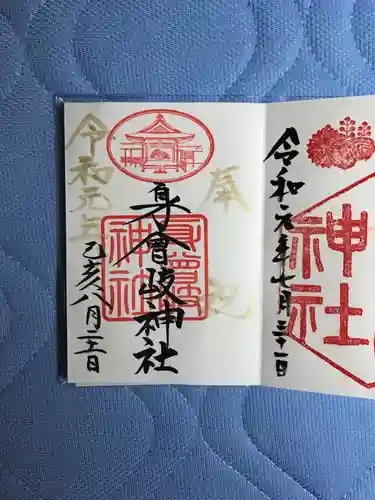 神社
令和元年七月三十一日
奉祝
身曾岐神社
身曾岐
神社
令和元年
己亥八月